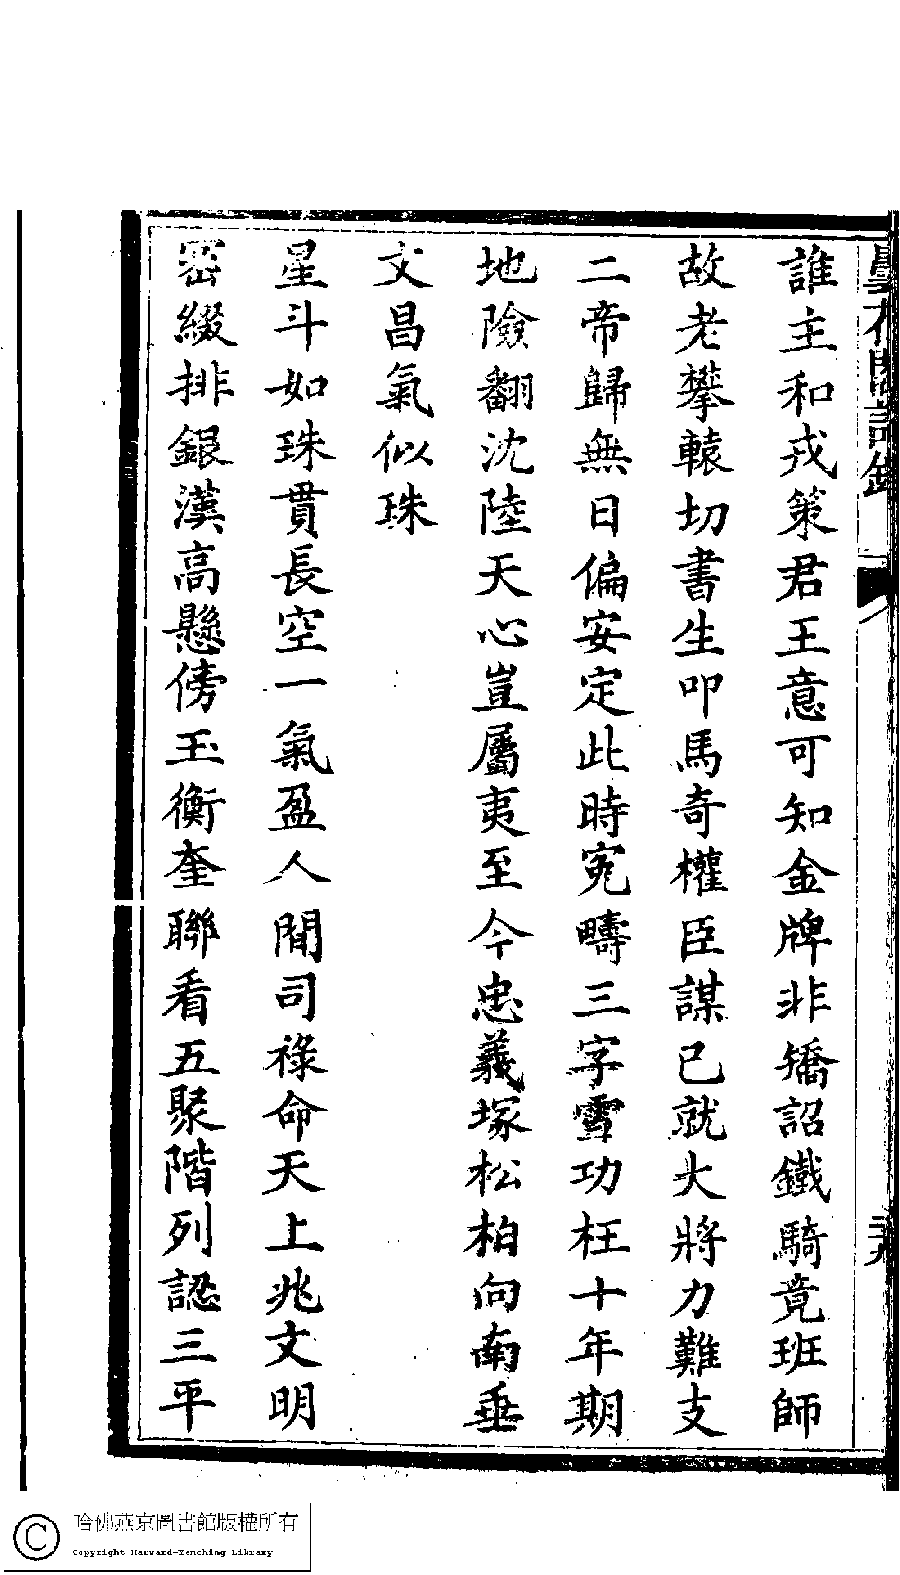 曇花閣詩鈔
二十九
誰主和戎策君王意可知金牌非矯詔鐵騎竟班師
故老攀轅切書生叩馬奇權臣謀已就大將力難支
二帝歸無日偏安定此時冤疇三字雪功枉十年期
地險翻沈陸天心豈屬夷至今忠義塚松柏向南垂
文昌氣似珠
星斗如珠貫長空一氣盈人間司祿命天上兆文明
密綴排銀漢高懸傍玉衡奎聯看五聚階列認三平
哈佛燕京圖書館版權所有
Copyright Harvard-Yenching Library